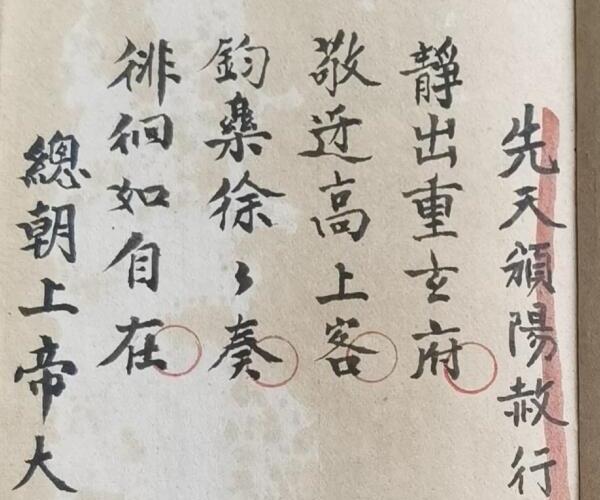 先天頒陽赦行
靜出重玄府
敬迓高上客
鈞樂徐々奏
徘徊如自在
總朝上帝大